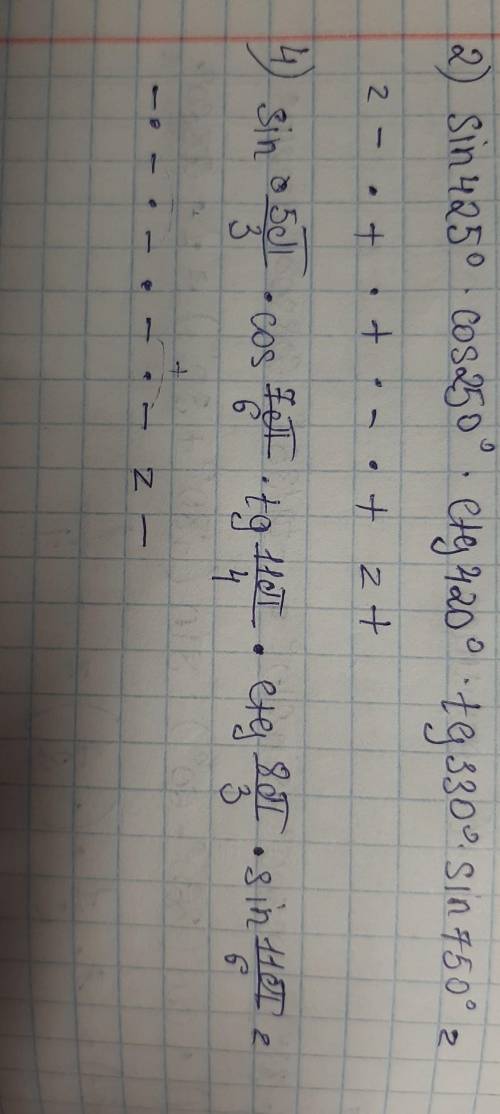 2) sin425° · cos250° · ctg420° · tg330° · sin750° =
= - · + · + · - · + = +
4) sin 5π/3 · cos 7π/6 · tg 11π/4 · ctg 8π/3 · sin 11π/6 =
- · - · - · - · - = -
+